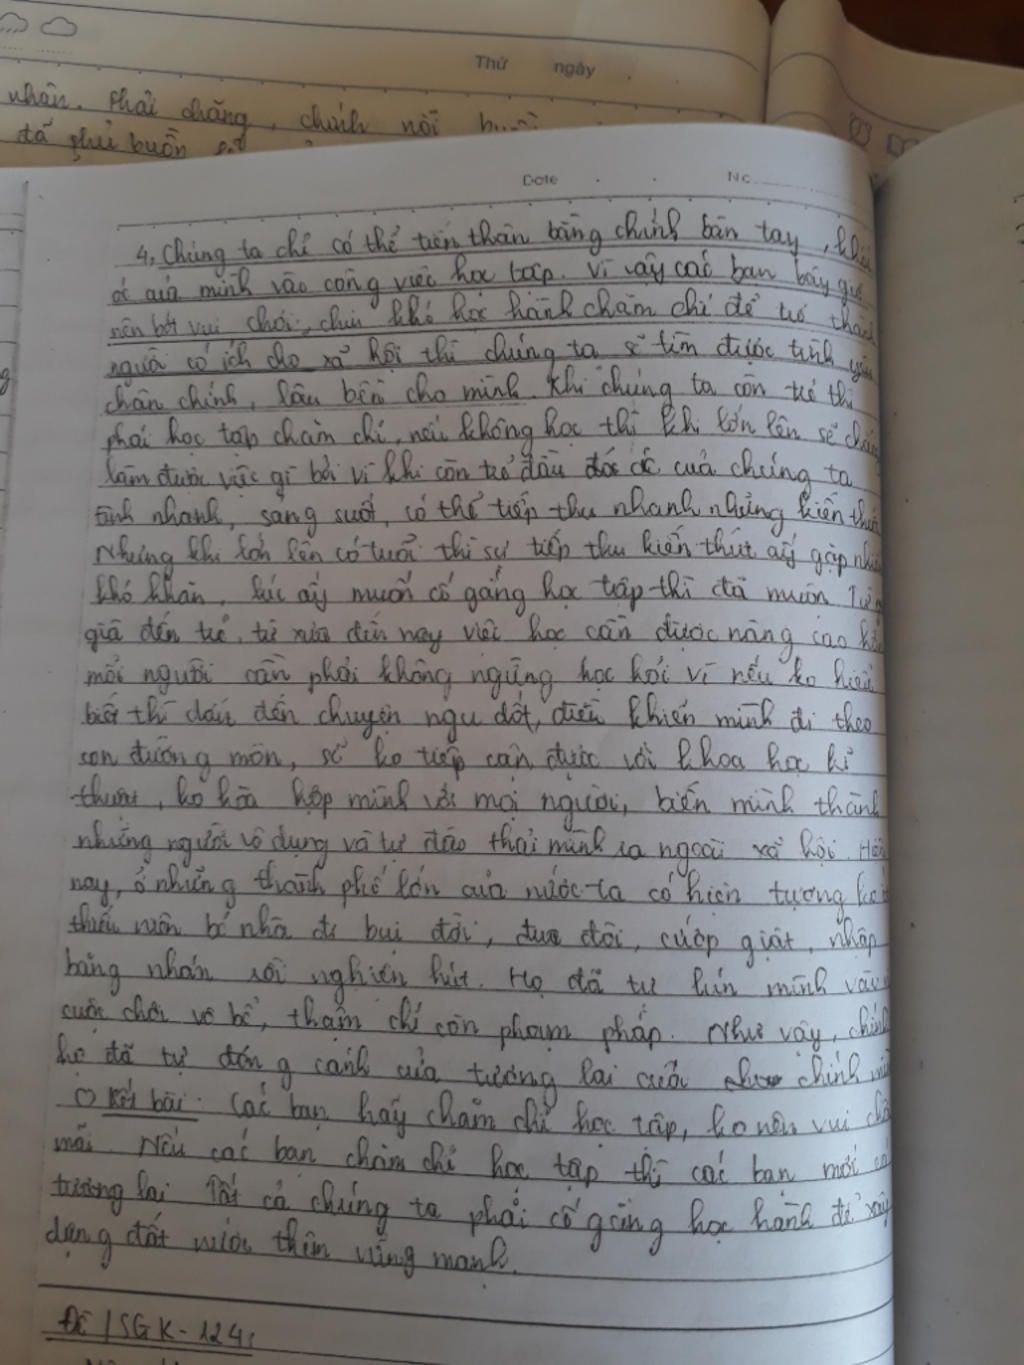 Thứ ngày
nhân. Phải chăng, chính nỗi
đã phải buồn
Date No
4, Chúng ta chỉ có thể tiến thân bằng chính bàn tay, khối
óc của mình vào công việc học tập. Vì vậy các bạn bây giờ
nên bớt vui chơi, chịu khó học hành chăm chỉ để trở thành
người có ích cho xã hội thì chúng ta sẽ tìm được tình yêu
chân chính, lâu bền cho mình. Khi chúng ta còn trẻ thì
phải học tập chăm chỉ, nếu không học thì khi lớn lên sẽ chẳng
làm được việc gì bởi vì khi còn trẻ đầu óc của chúng ta
tinh nhanh, sáng suốt, có thể tiếp thu nhanh những kiến thức
Nhưng khi lớn lên có tuổi thì sự tiếp thu kiến thức ấy gặp nhiều
khó khăn, lúc ấy muốn cố gắng học tập thì đã muộn. Từ
già đến trẻ, từ xưa đến nay việc học cần được nâng cao hơn
mỗi người cần phải không ngừng học hỏi vì nếu ko hiểu
biết thì dẫn đến chuyện ngu dốt, điều khiến mình đi theo
con đường mòn, sẽ ko tiếp cận được với khoa học kĩ
thuật, ko hòa hợp mình với mọi người, biến mình thành
những người vô dụng và tự đào thải mình ra ngoài xã hội. Hiện
nay, ở những thành phố lớn của nước ta có hiện tượng
thiếu niên bỏ nhà đi bụi đời, đua đòi, cướp giật, nhập
băng nhóm rồi nghiện hút. Họ đã tự lún mình vào
cuộc chơi vô bổ, thậm chí còn phạm pháp. Như vậy, chính
họ đã tự đóng cánh cửa tương lai của chính mình
○ Kết bài: Các bạn hãy chăm chỉ học tập, ko nên vui chơi
mãi. Nếu các bạn chăm chỉ học tập thì các bạn mới có
tương lai. Tất cả chúng ta phải cố gắng học hành để xây
dựng đất nước thêm vững mạnh.
Đề 1 SGK - 124: